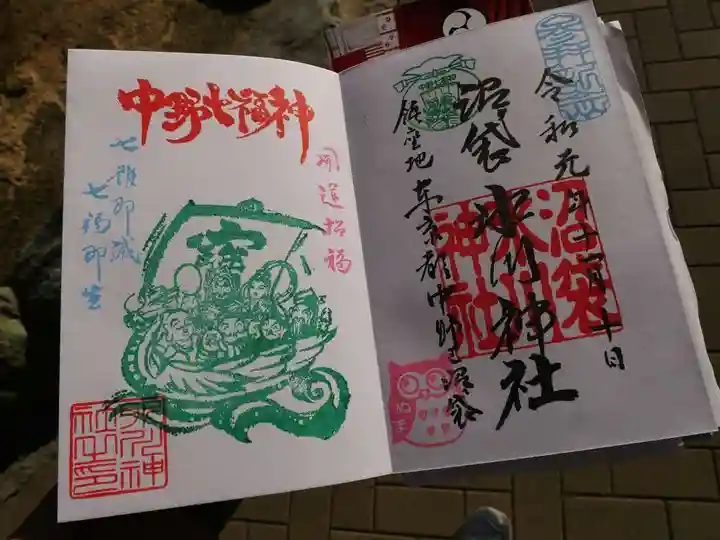 令和元年十一月十日
沼袋氷川神社
鎮座地 東京都中野区沼袋
沼袋
氷川
神社
ぬま
中野七福神
開運招福
七難即滅
七福即生
宝